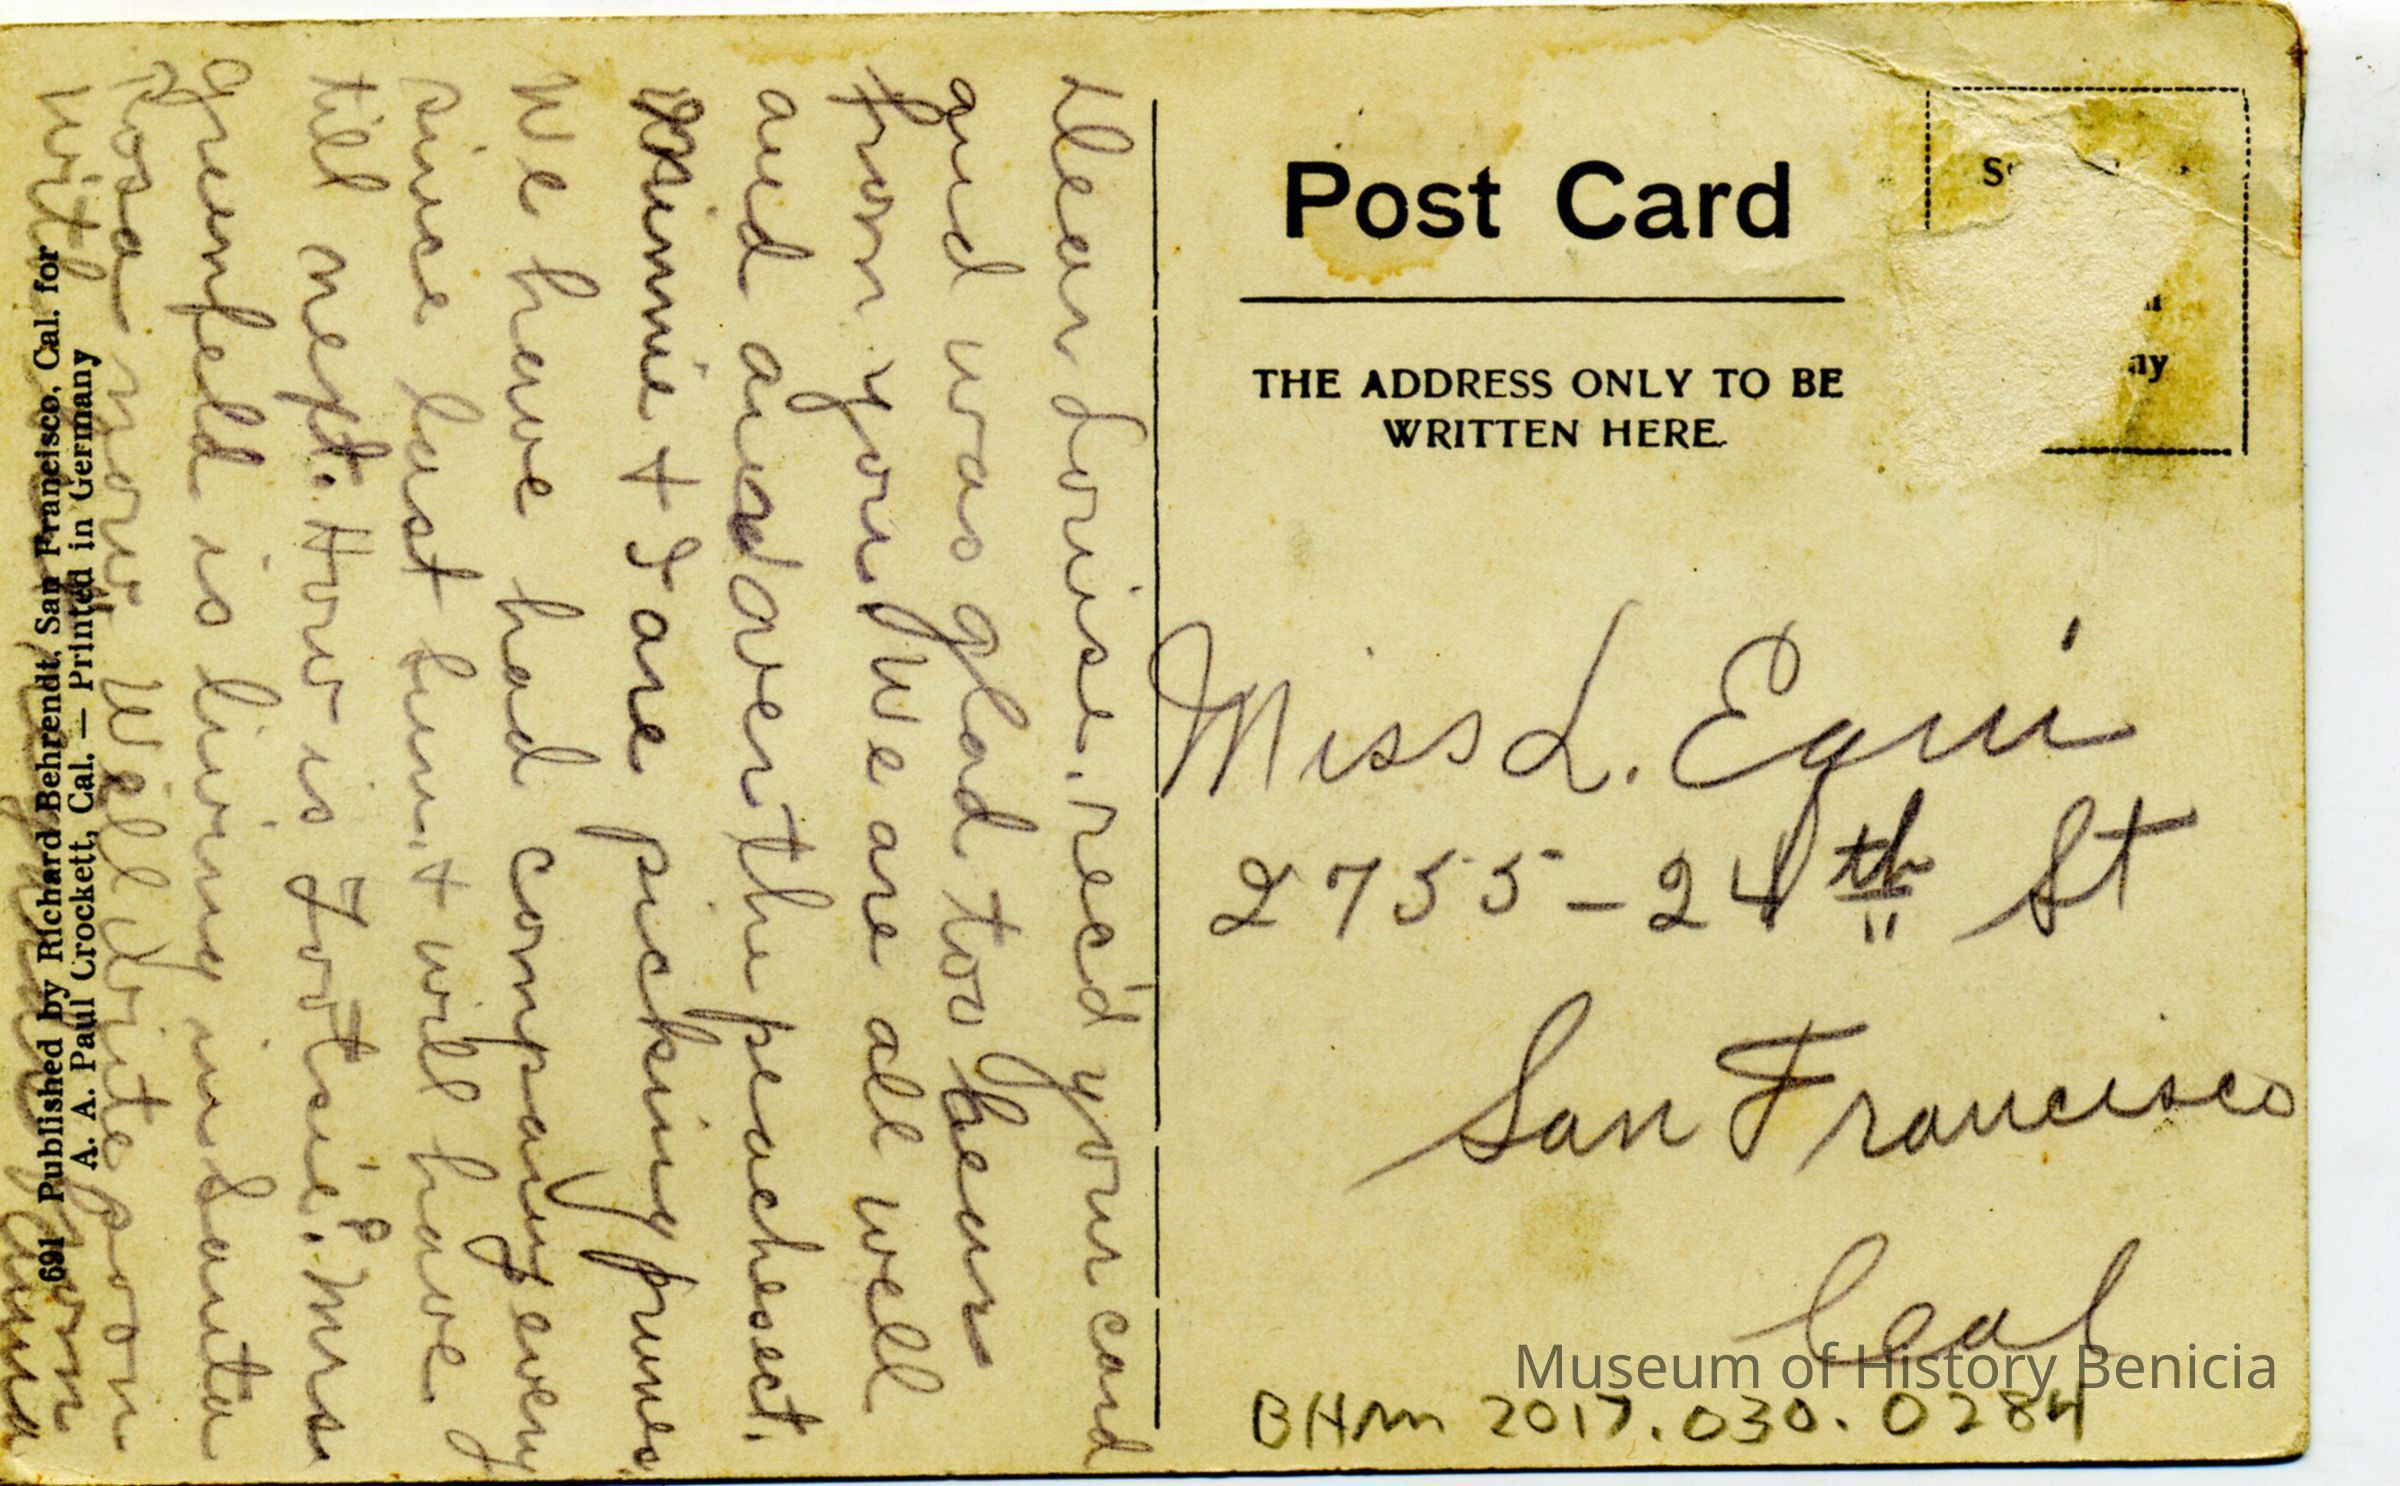 Post Card
THE ADDRESS ONLY TO BE
WRITTEN HERE.
ny
Miss L. Equi
2755-24th St
San Francisco
Cal
BHM 2017.030.0284
Museum of History Benicia
Dear Louise. rec'd your card
and was glad too hear
from you We are all well
and and over the peaches
Minnie + I are picking prunes.
We have had company every
since last Sun. + will have
till next. How is Tootsie? Mrs
Greenfeld is living in Santa
Rosa now. Well write soon
with
691 Published by Richard Behrendt, San Francisco, Cal. for
A. A. Paul Crockett, Cal. — Printed in Germany